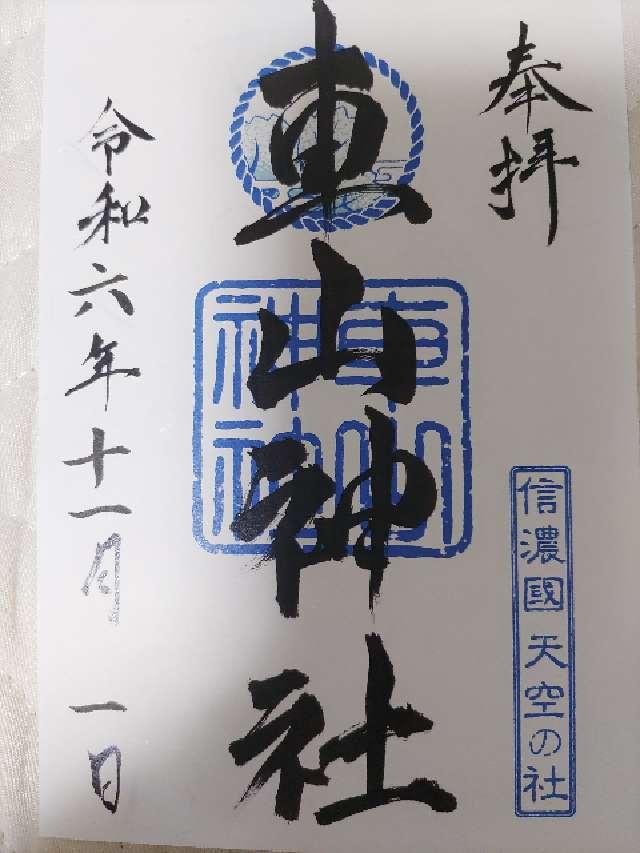 奉拝
信濃國 天空の社
車山神社
車山神社
令和六年十一月 一日